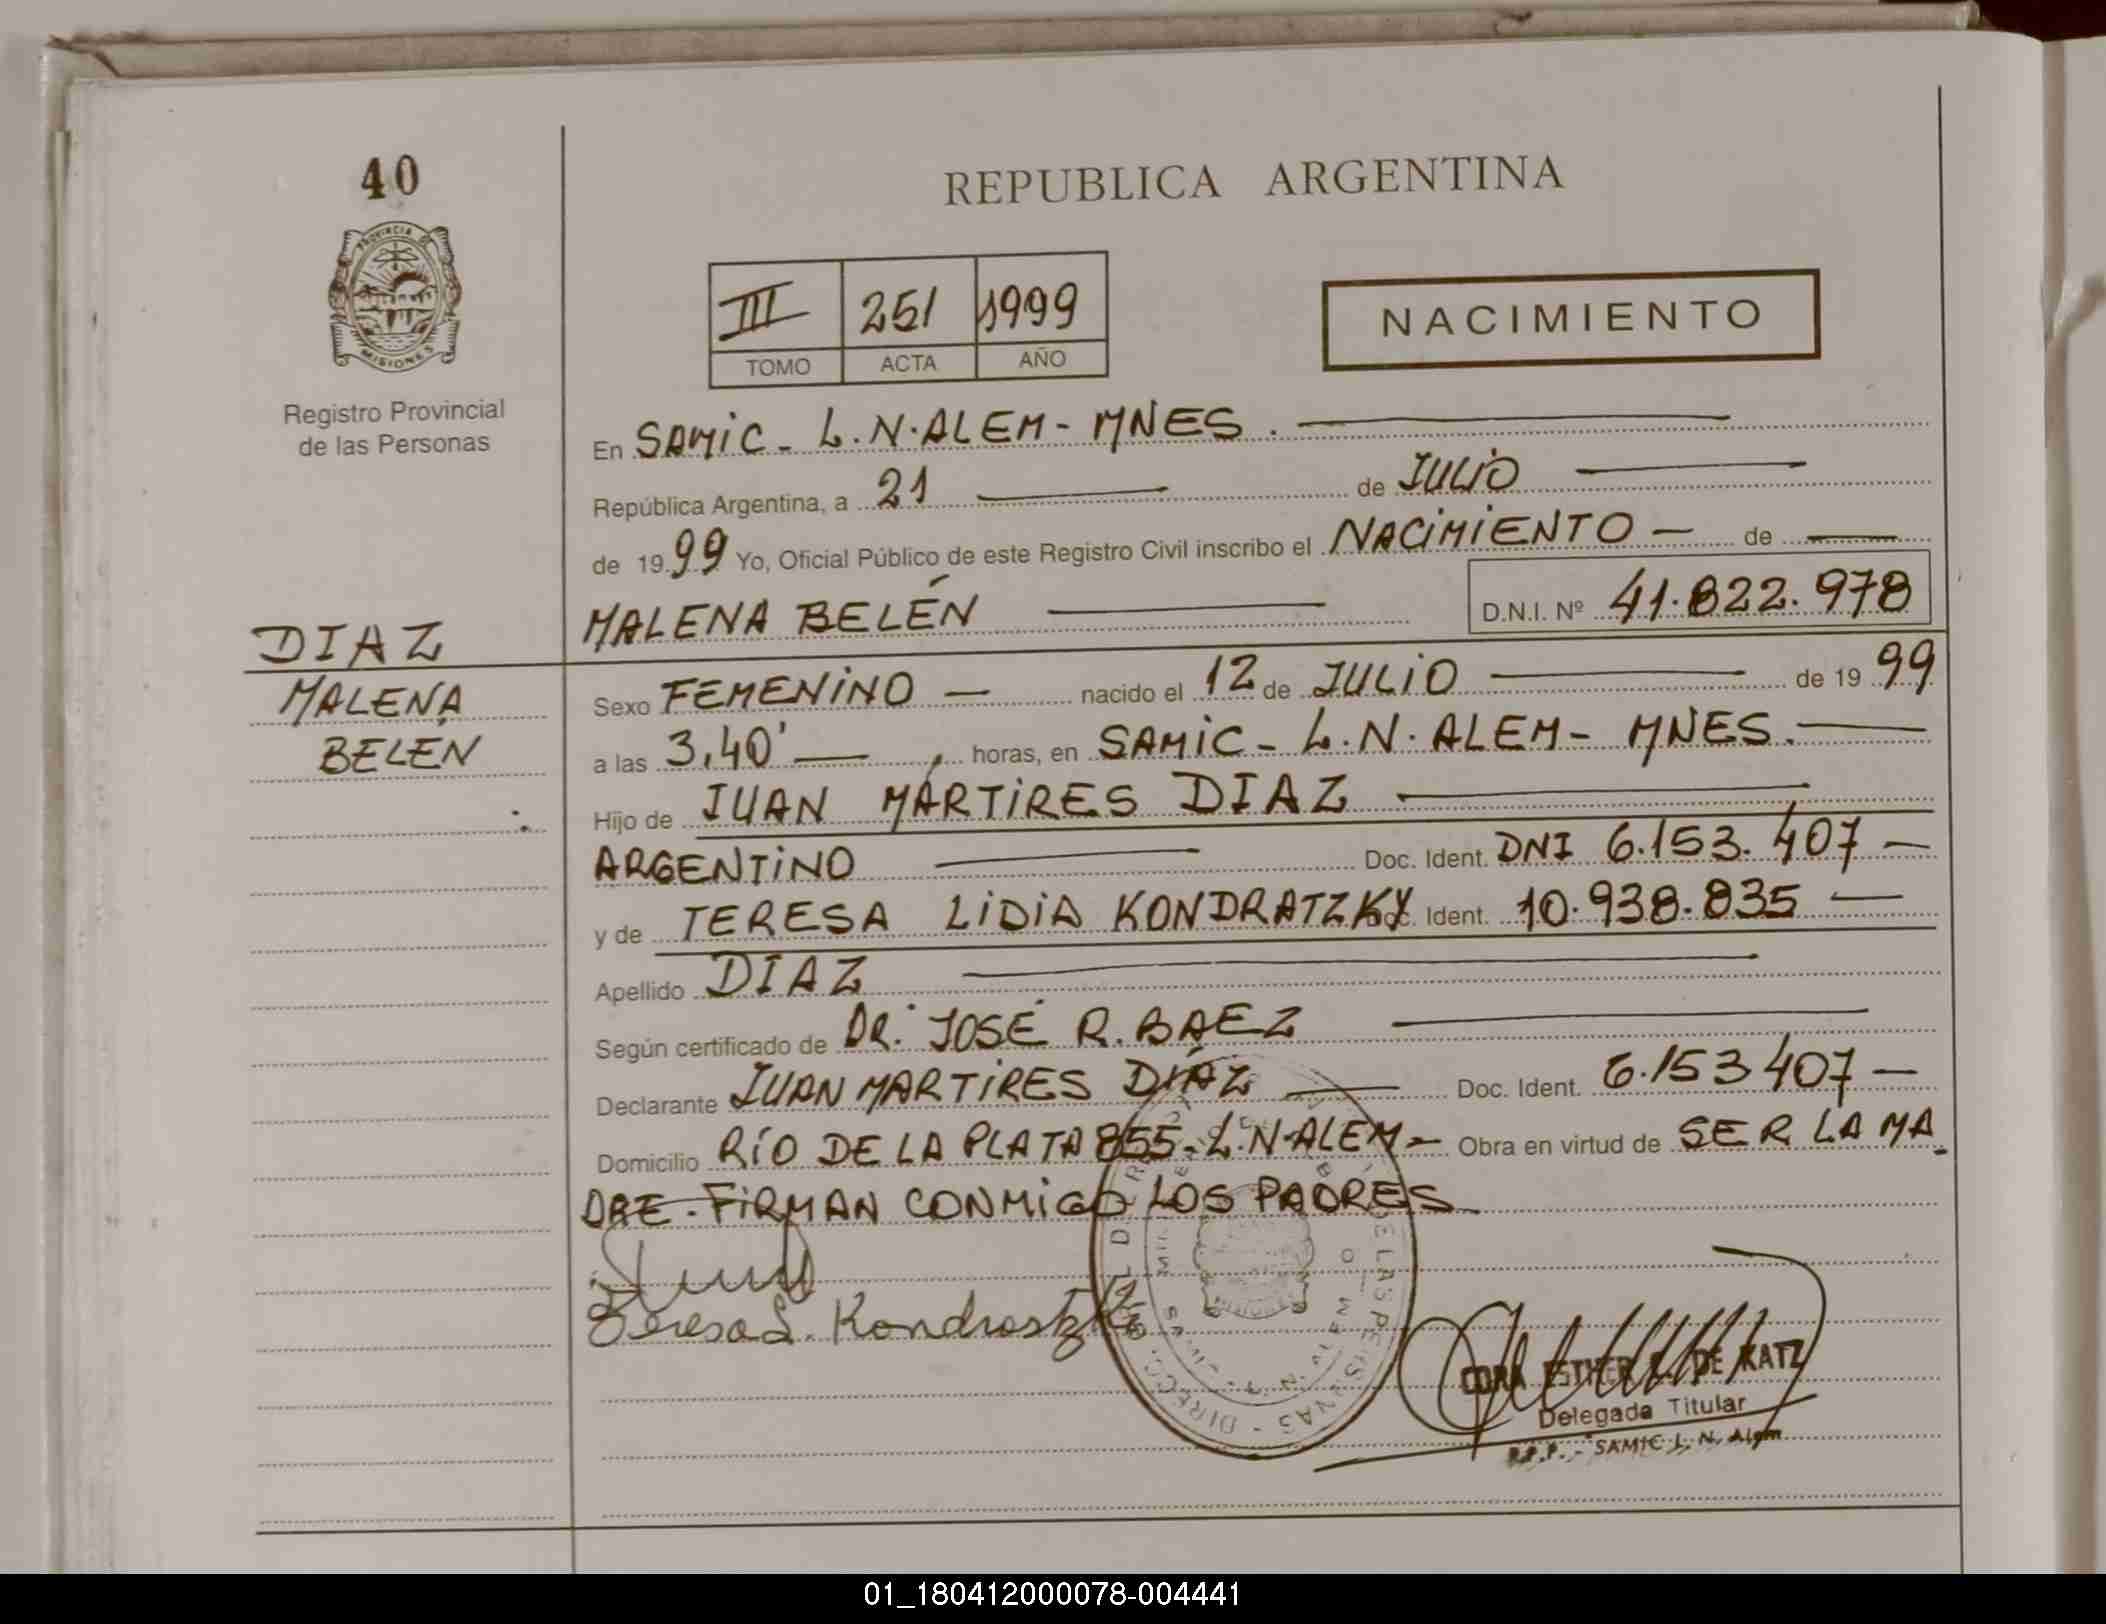 40
REPUBLICA ARGENTINA
PROVINCIA DE
MISIONES
III 251 1999
TOMO ACTA AÑO
NACIMIENTO
Registro Provincial
de las Personas
En SAMIC - L.N. ALEM - MNES.
República Argentina, a 21 de JULIO
de 1999 Yo, Oficial Público de este Registro Civil inscribo el NACIMIENTO - de
MALENA BELÉN D.N.I. Nº 41.822.978
DIAZ
MALENA
BELÉN
Sexo FEMENINO - nacido el 12 de JULIO de 1999
a las 3,40' horas, en SAMIC - L.N. ALEM - MNES.
Hijo de JUAN MÁRTIRES DIAZ
ARGENTINO Doc. Ident. DNI 6.153.407 -
y de TERESA LIDIA KONDRATZKY Doc. Ident. 10.938.835 -
Apellido DIAZ
Según certificado de DR. JOSÉ R. BAEZ
Declarante JUAN MARTIRES DÍAZ Doc. Ident. 6.153407 -
Domicilio RÍO DE LA PLATA 855 - L.N. ALEM - Obra en virtud de SER LA MA-
DRE. FIRMAN CONMIGO LOS PADRES
Teresa L. Kondratzky
DE LAS PERSONAS - DIRECC.
MISIONES
CORA ESTHER DE KATZ
Delegada Titular
R.P.P. - SAMIC L. N. Alem
01_180412000078-004441